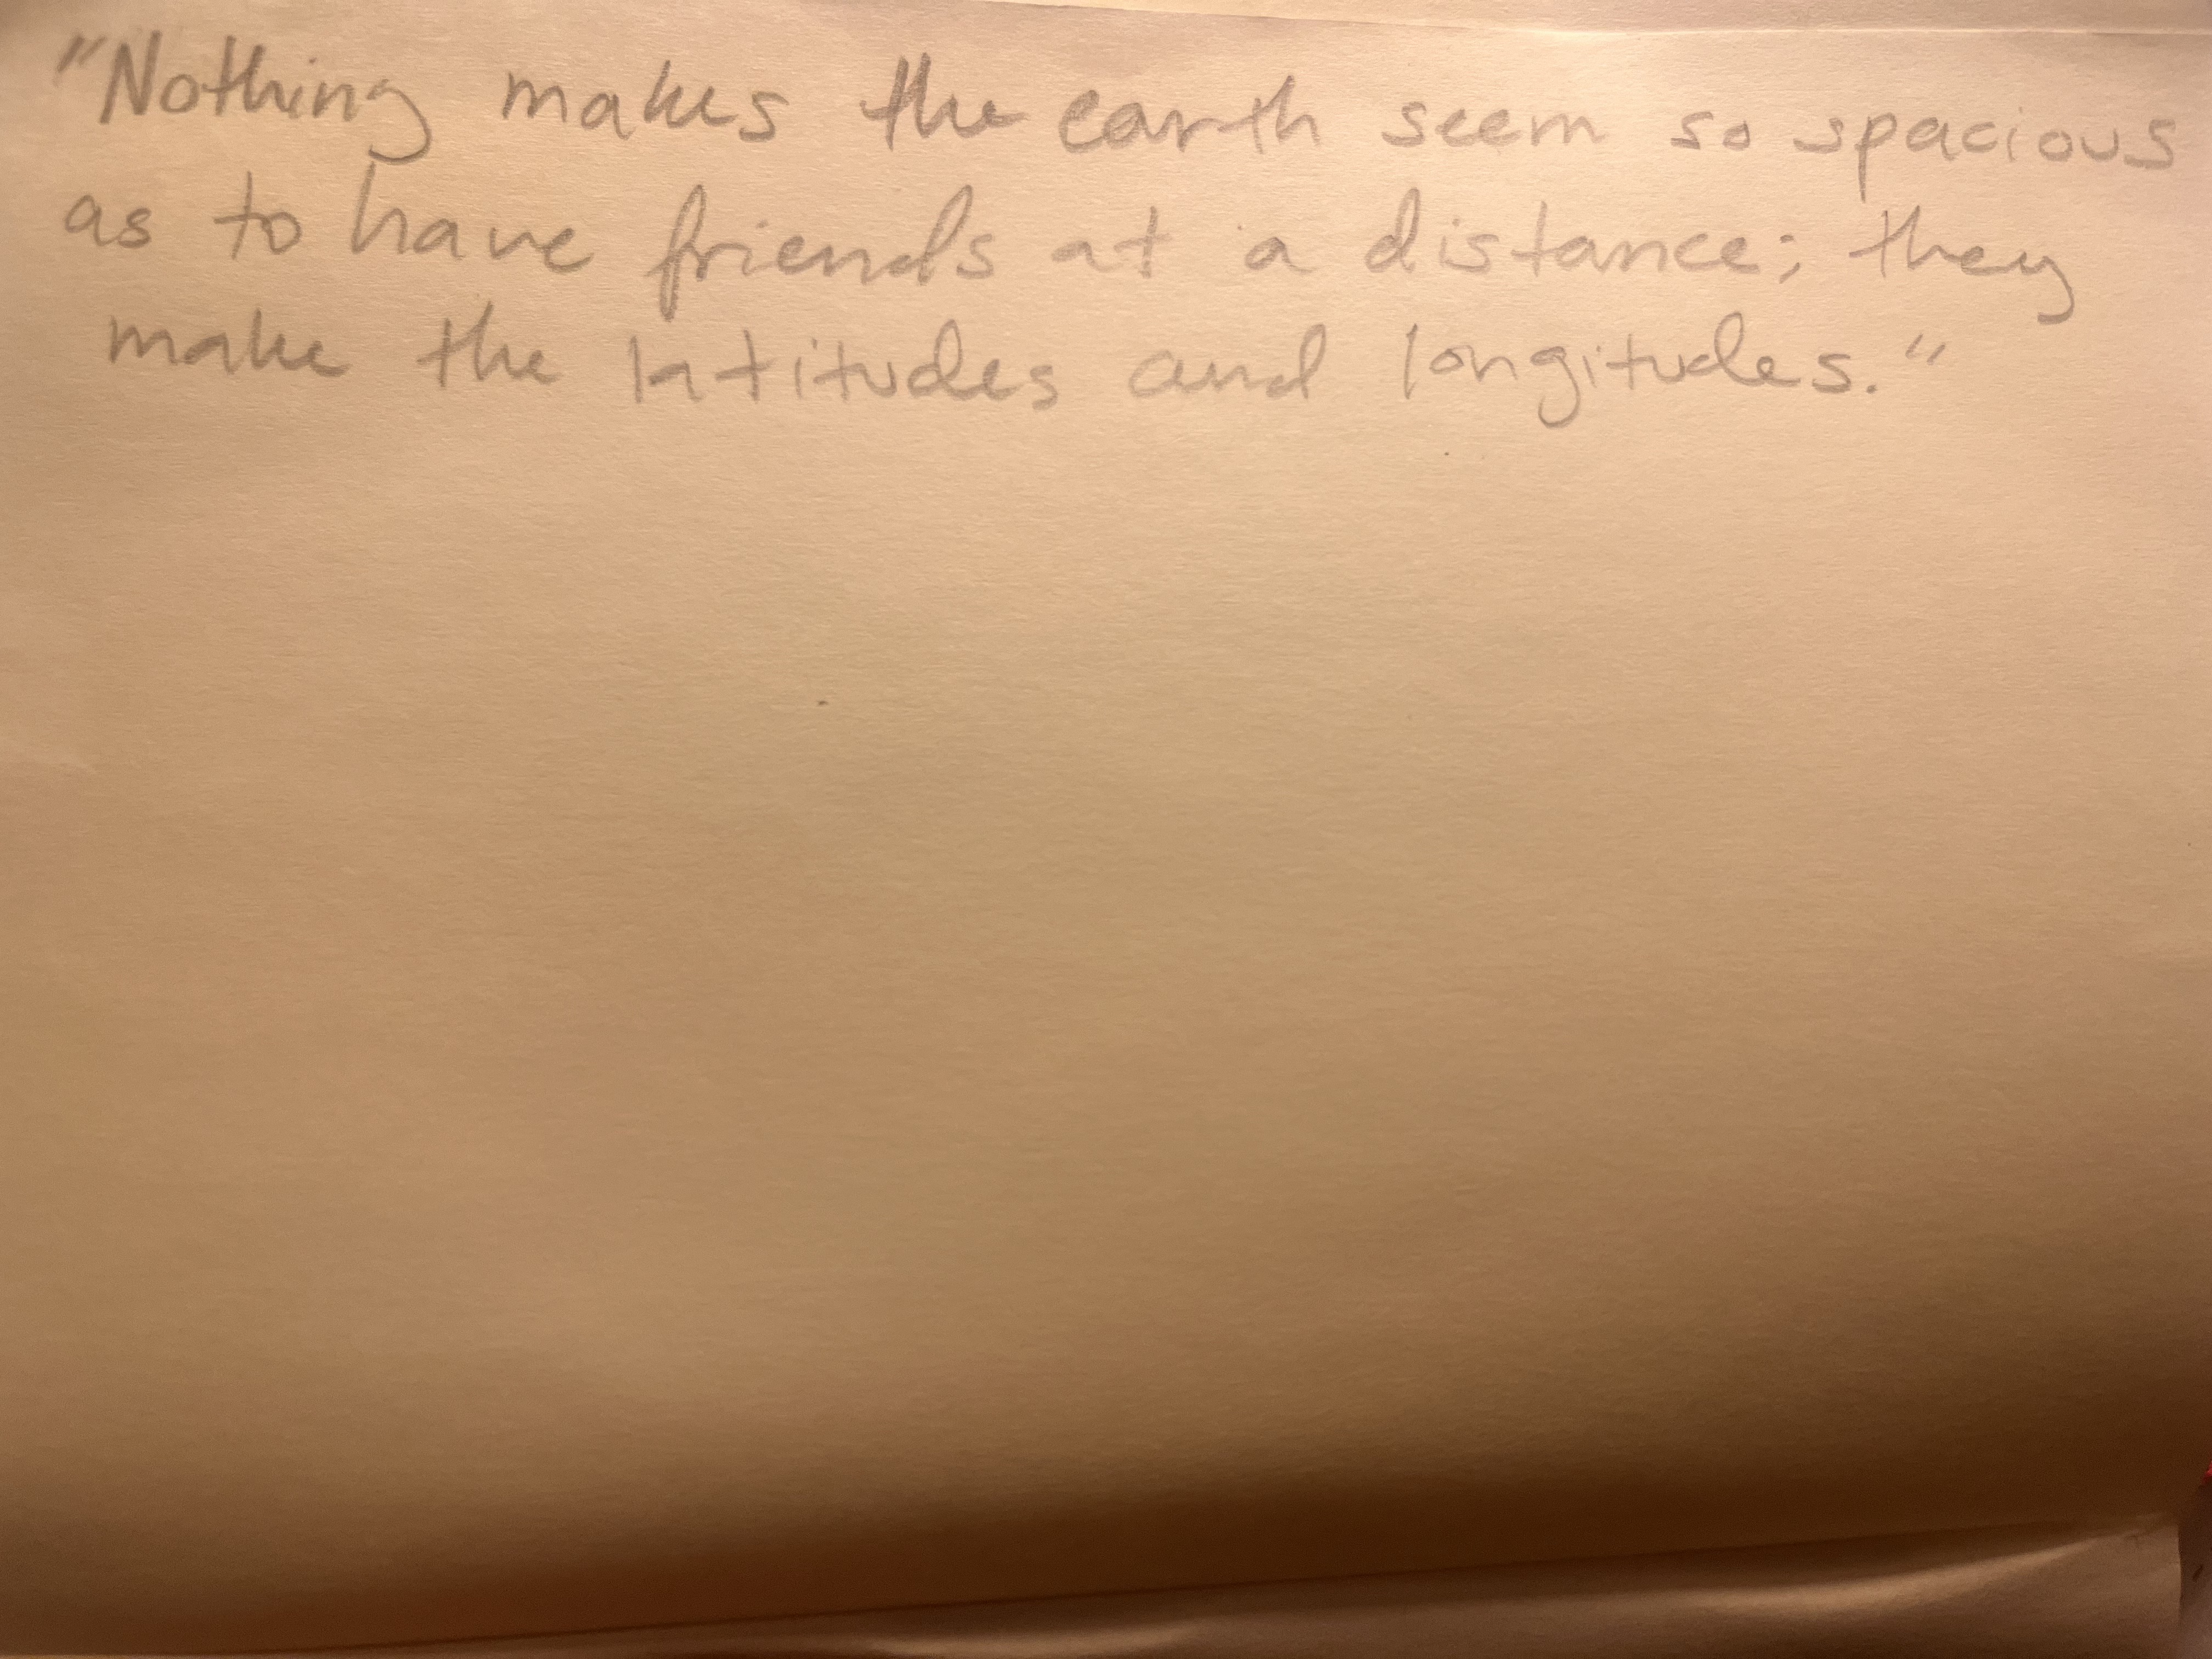 "Nothing makes the earth seem so spacious
as to have friends at a distance; they
make the latitudes and longitudes."